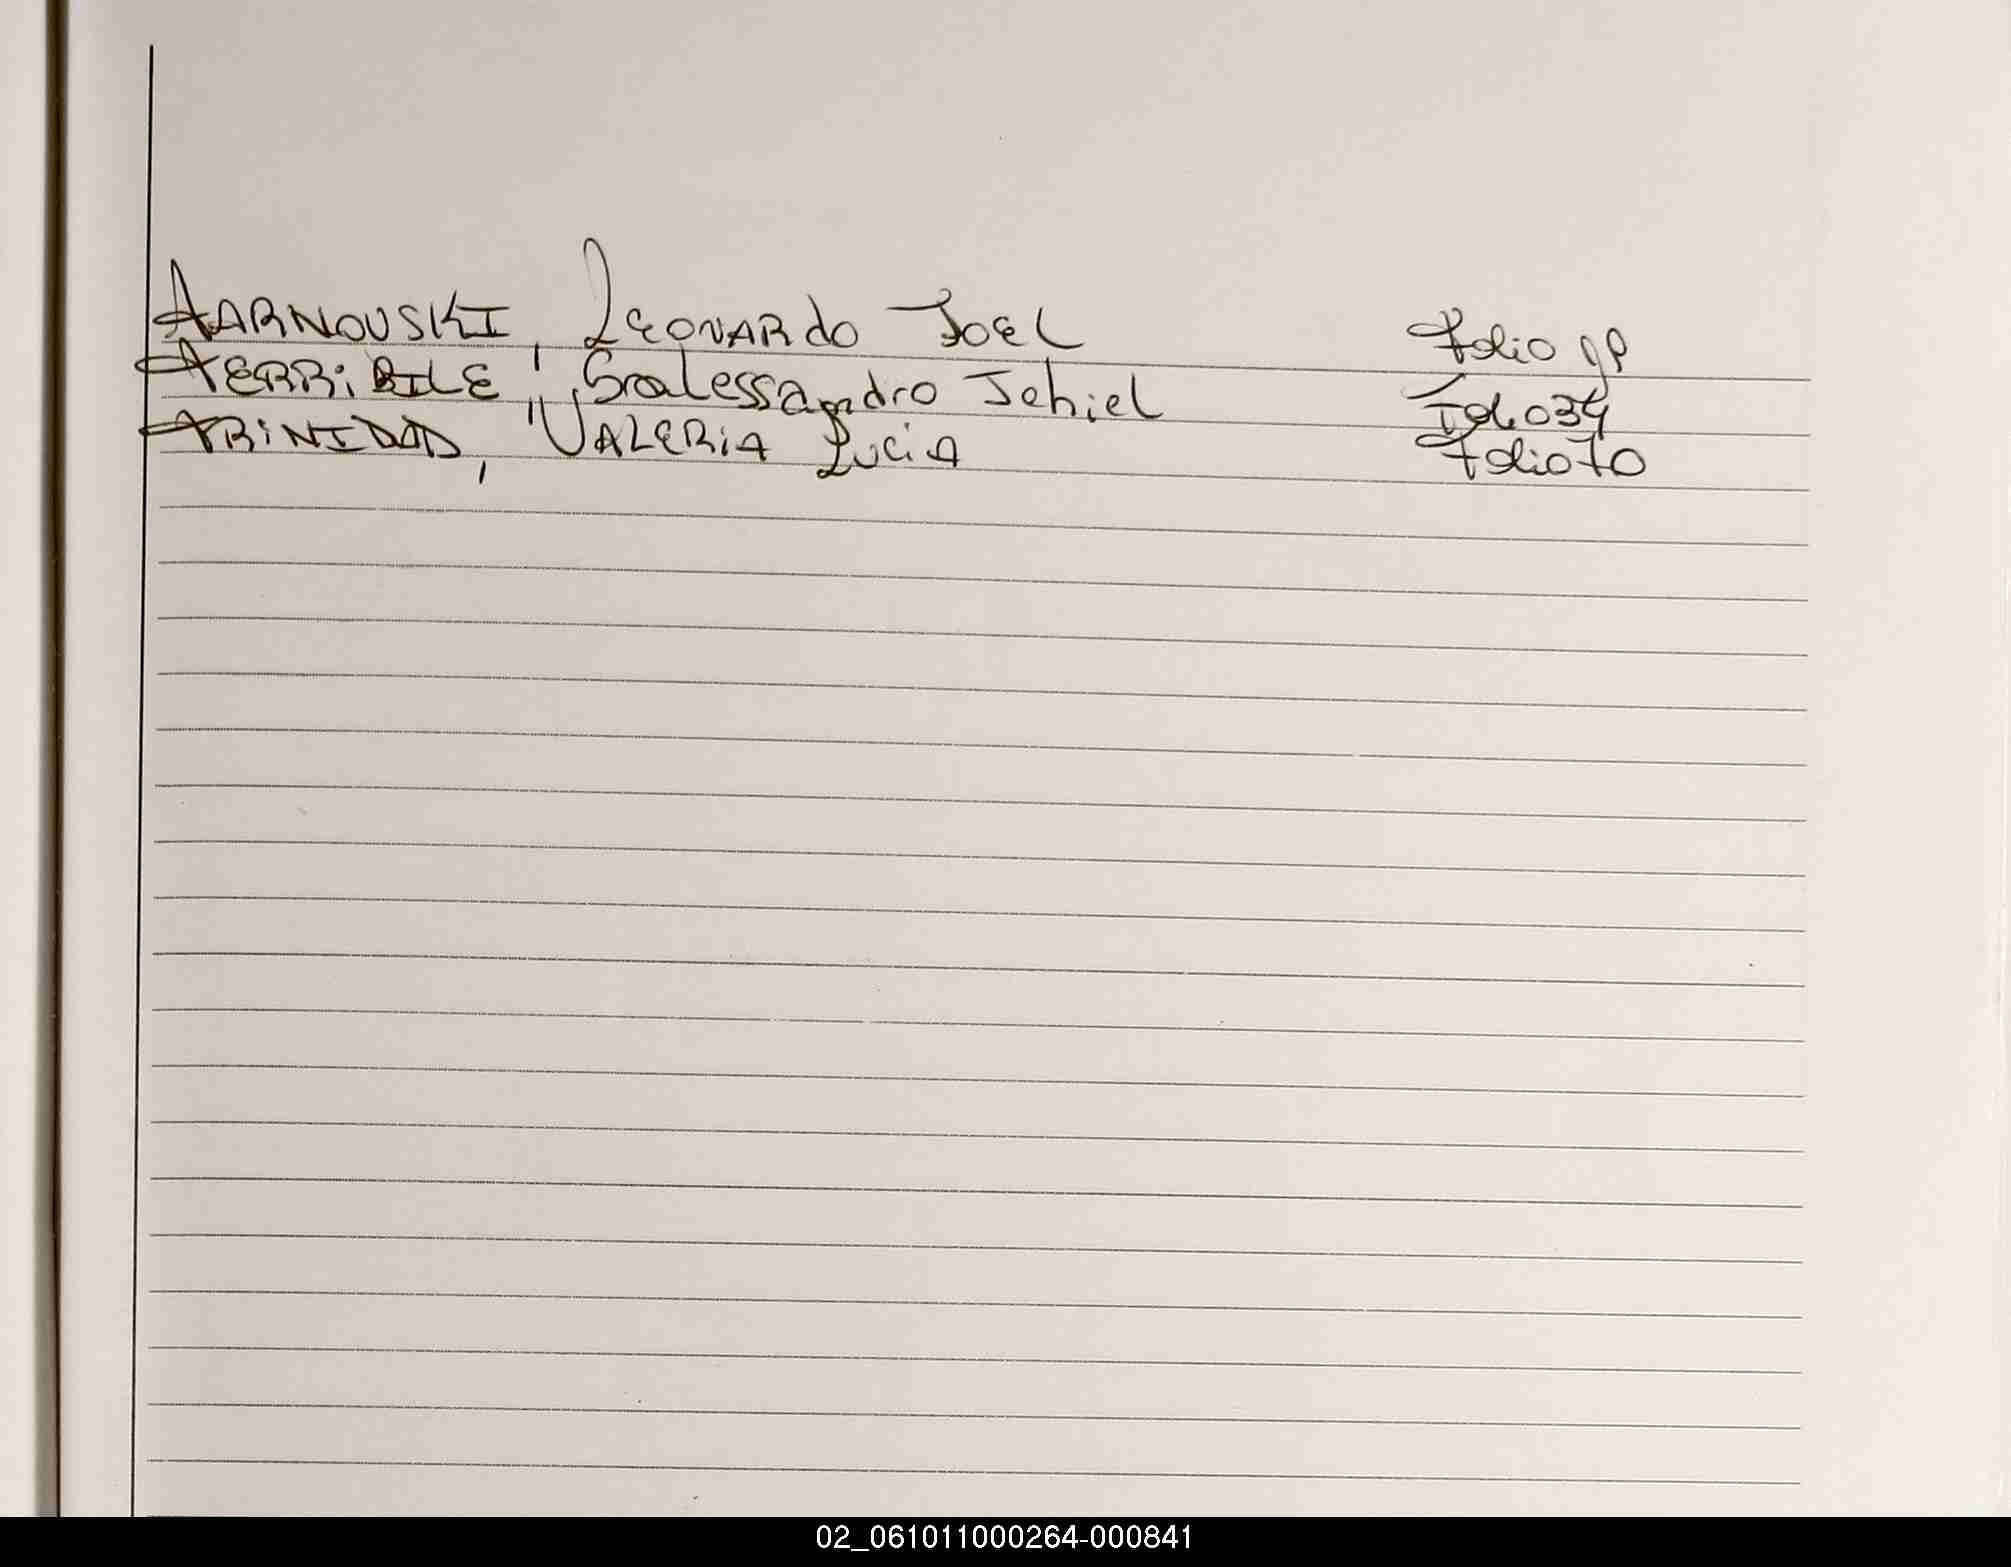 TARNOUSKI, Leonardo Joel Folio 98
TERRIBILE, Gralessandro Jehiel Folio 34
TRINIDAD, VALERIA Lucia Folio 70
02_061011000264-000841